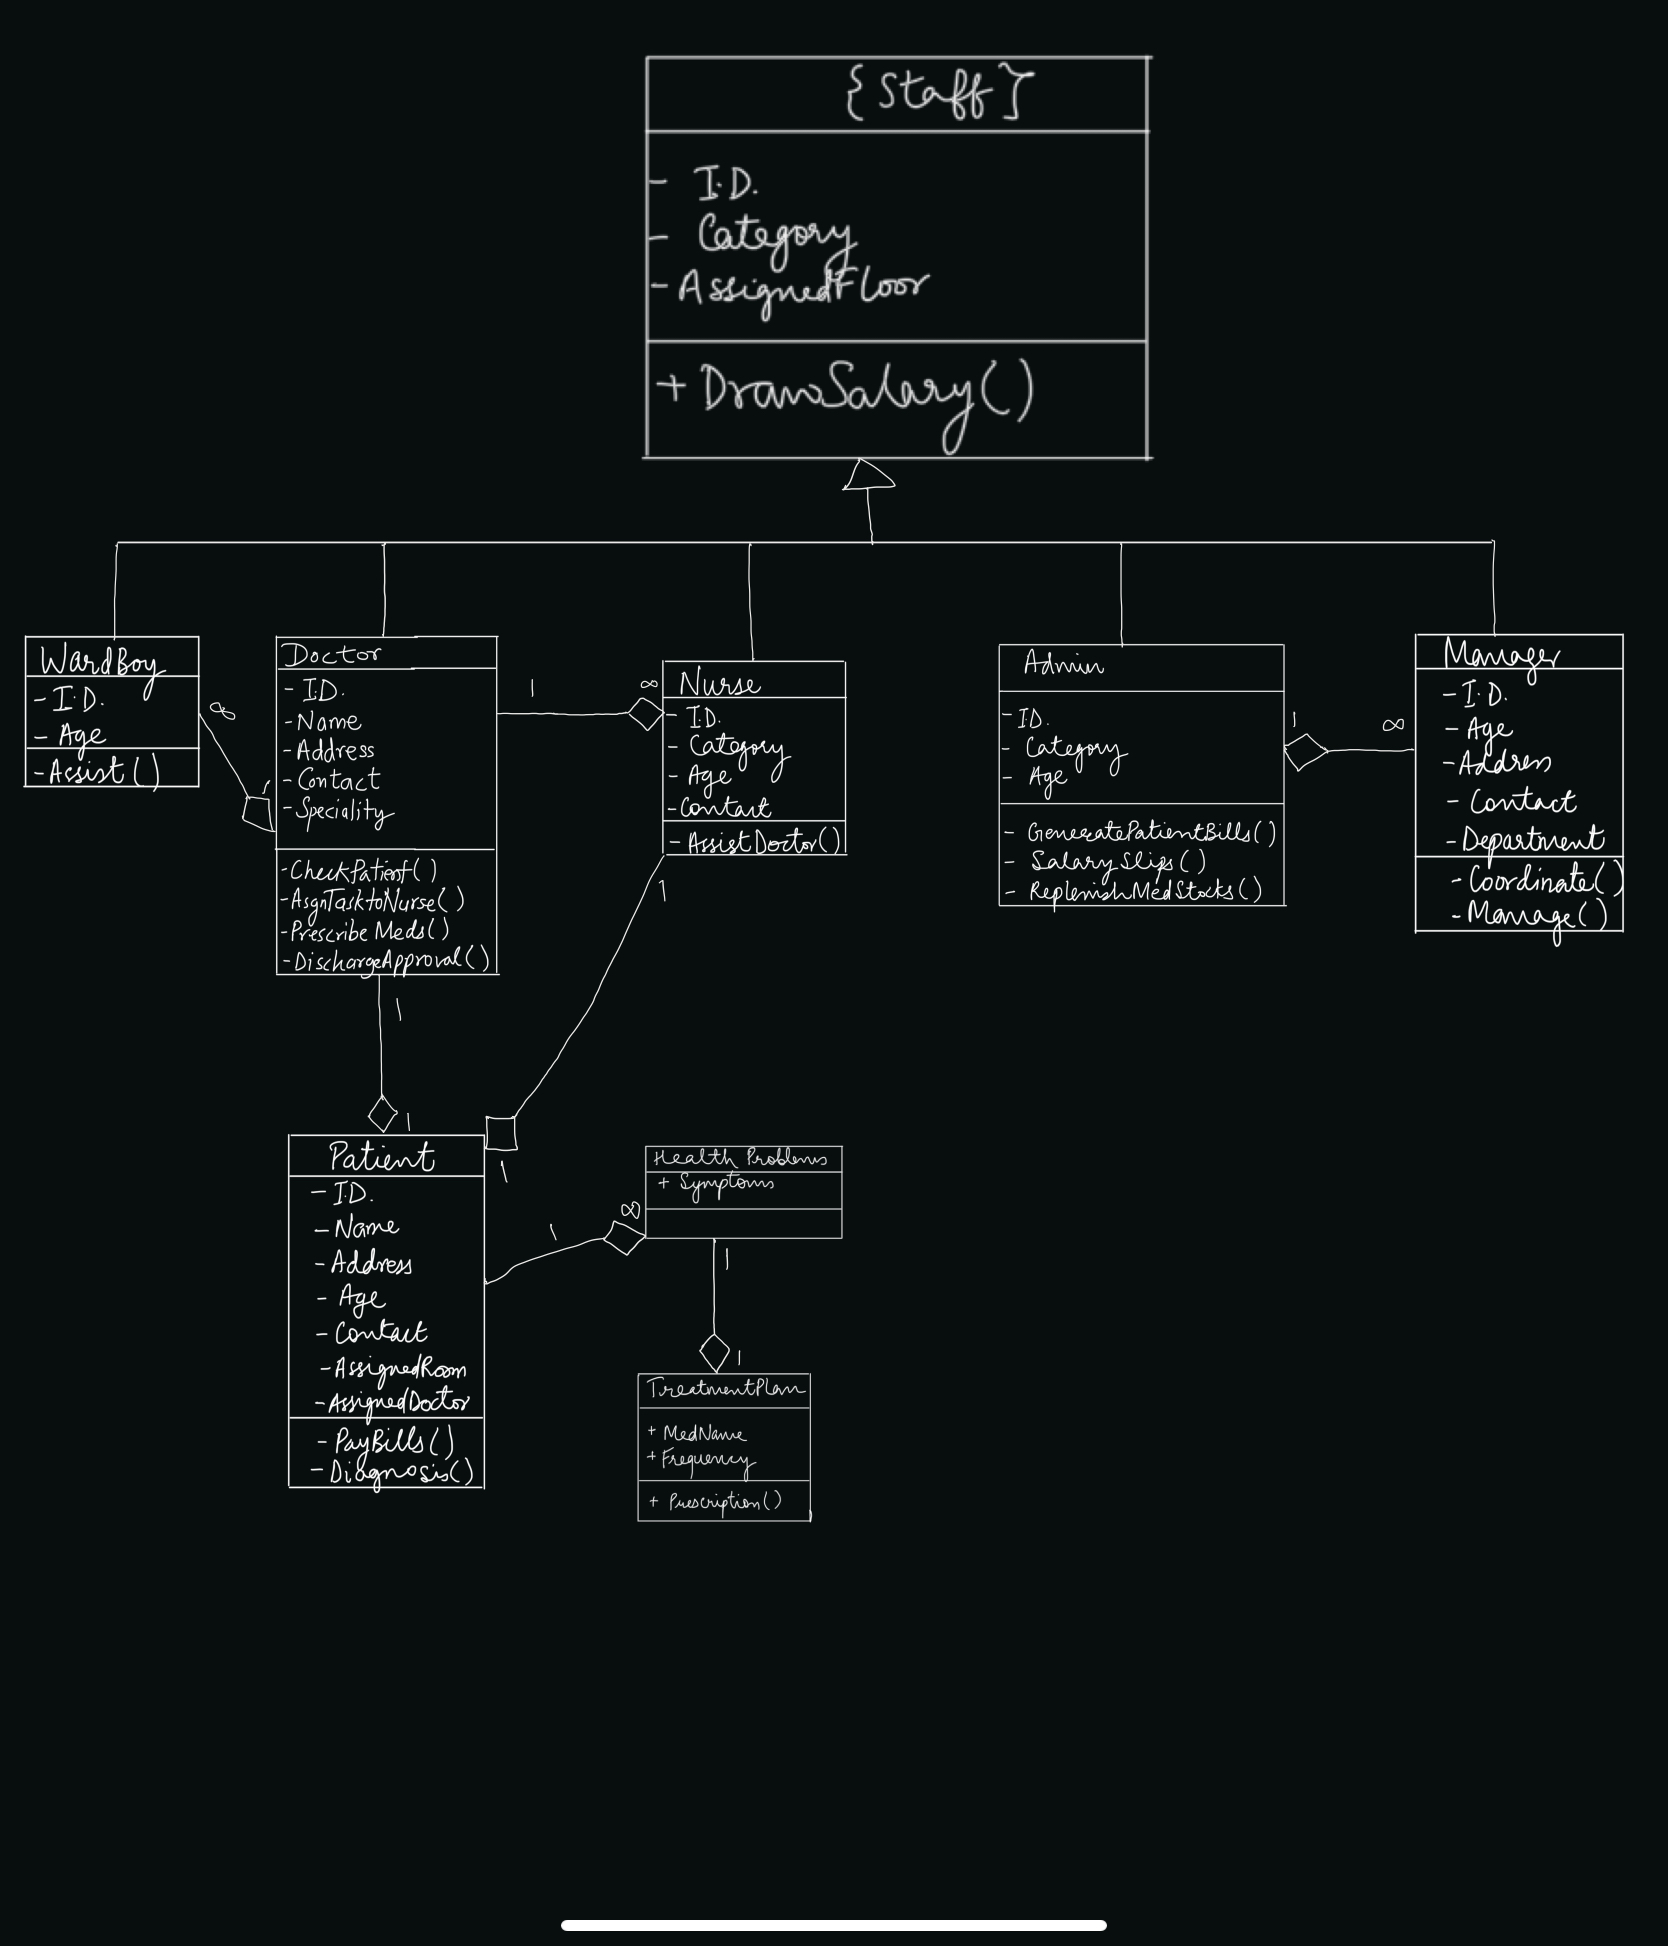 {Staff}
- I.D.
- Category
- AssignedFloor
+ DrawSalary()
WardBoy
- I.D.
- Age
- Assist()
∞
1
Doctor
- I.D.
- Name
- Address
- Contact
- Speciality
- CheckPatient()
- AsgnTasktoNurse()
- PrescribeMeds()
- DischargeApproval()
1
∞
Nurse
- I.D.
- Category
- Age
- Contact
- AssistDoctor()
1
Admin
- ID.
- Category
- Age
- GeneratePatientBills()
- SalarySlips()
- ReplenishMedStocks()
1
∞
Manager
- I.D.
- Age
- Address
- Contact
- Department
- Coordinate()
- Manage()
1
1
1
Patient
- I.D.
- Name
- Address
- Age
- Contact
- AssignedRoom
- AssignedDoctor
- PayBills()
- Diagnosis()
1
∞
Health Problems
+ Symptoms
1
1
TreatmentPlan
+ MedName
+ Frequency
+ Prescription()